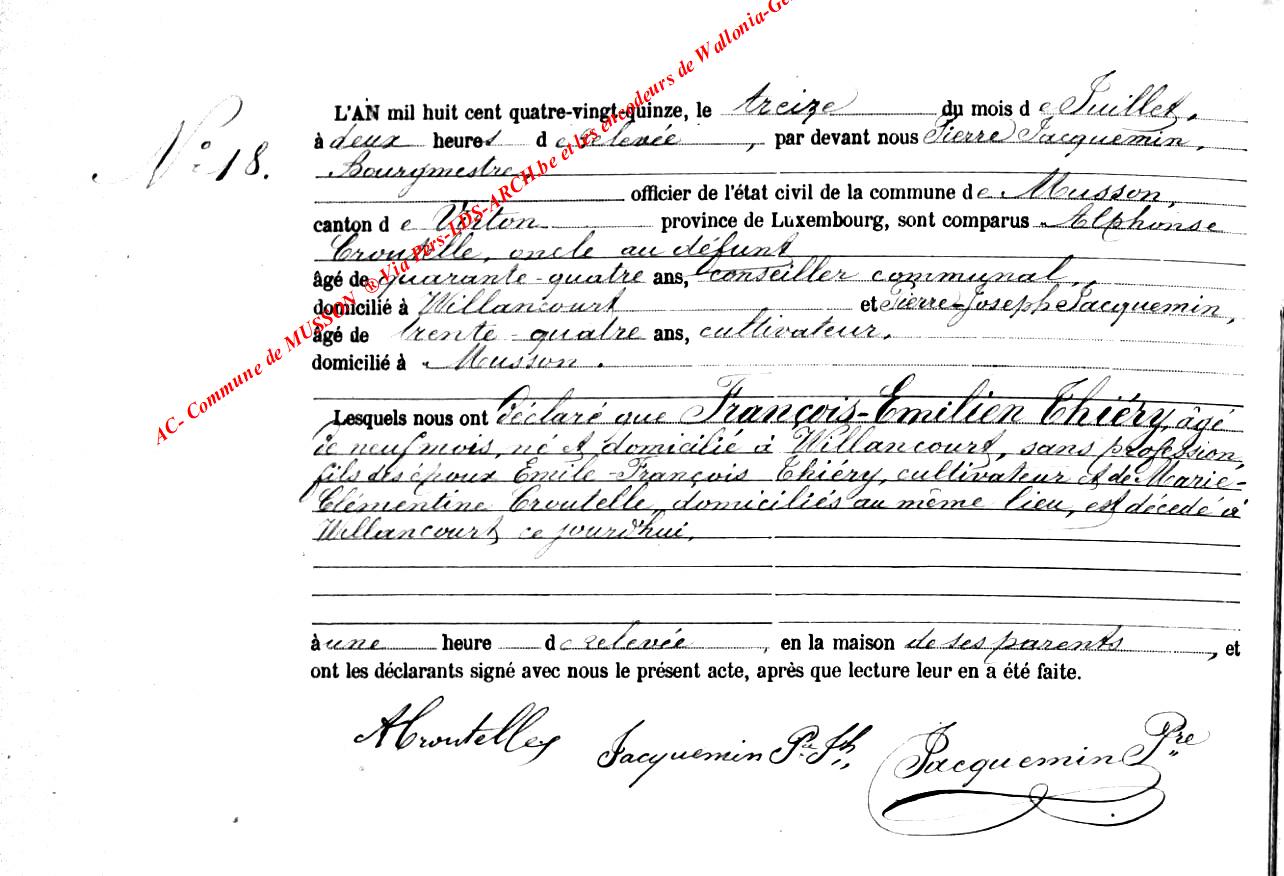 AC- Commune de MUSSON ® Via Pers-LDS-ARCH.be et les encodeurs de Wallonia-Ge
N° 18.
L'AN mil huit cent quatre-vingt-quinze, le treize du mois de Juillet,
à deux heures de relevée, par devant nous Pierre Jacquemin,
Bourgmestre,
officier de l'état civil de la commune de Musson,
canton de Virton province de Luxembourg, sont comparus Alphonse
Croutelle, oncle au défunt
âgé de quarante-quatre ans, conseiller communal,
domicilié à Willancourt et Pierre-Joseph Jacquemin,
âgé de trente-quatre ans, cultivateur,
domicilié à Musson.
Lesquels nous ont déclaré que François-Emilien Thiéry, âgé
de neuf mois, né et domicilié à Willancourt, sans profession,
fils des époux Emile-François Thiéry, cultivateur et de Marie-
Clémentine Croutelle, domiciliés au même lieu, est décédé à
Willancourt ce jourd'hui,
à une heure de relevée, en la maison de ses parents, et
ont les déclarants signé avec nous le présent acte, après que lecture leur en a été faite.
ACroutelles Jacquemin Pre Jh Jacquemin Pre